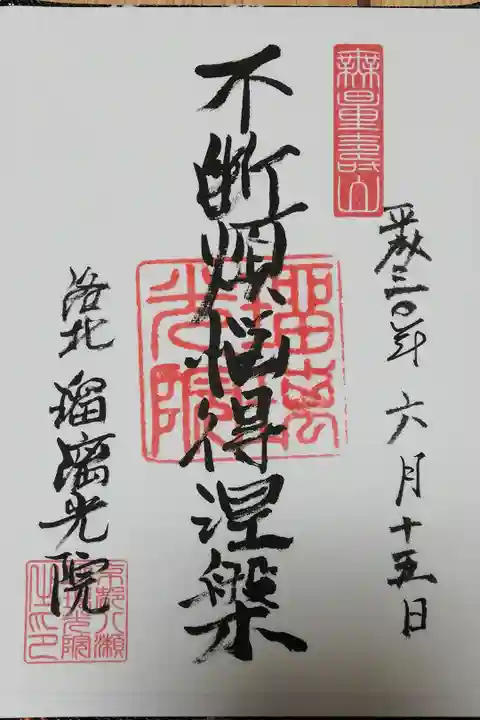 無量壽山
平成三〇年六月十五日
不断煩悩得涅槃
瑠璃光院
洛北 瑠璃光院
京都八瀬
光院